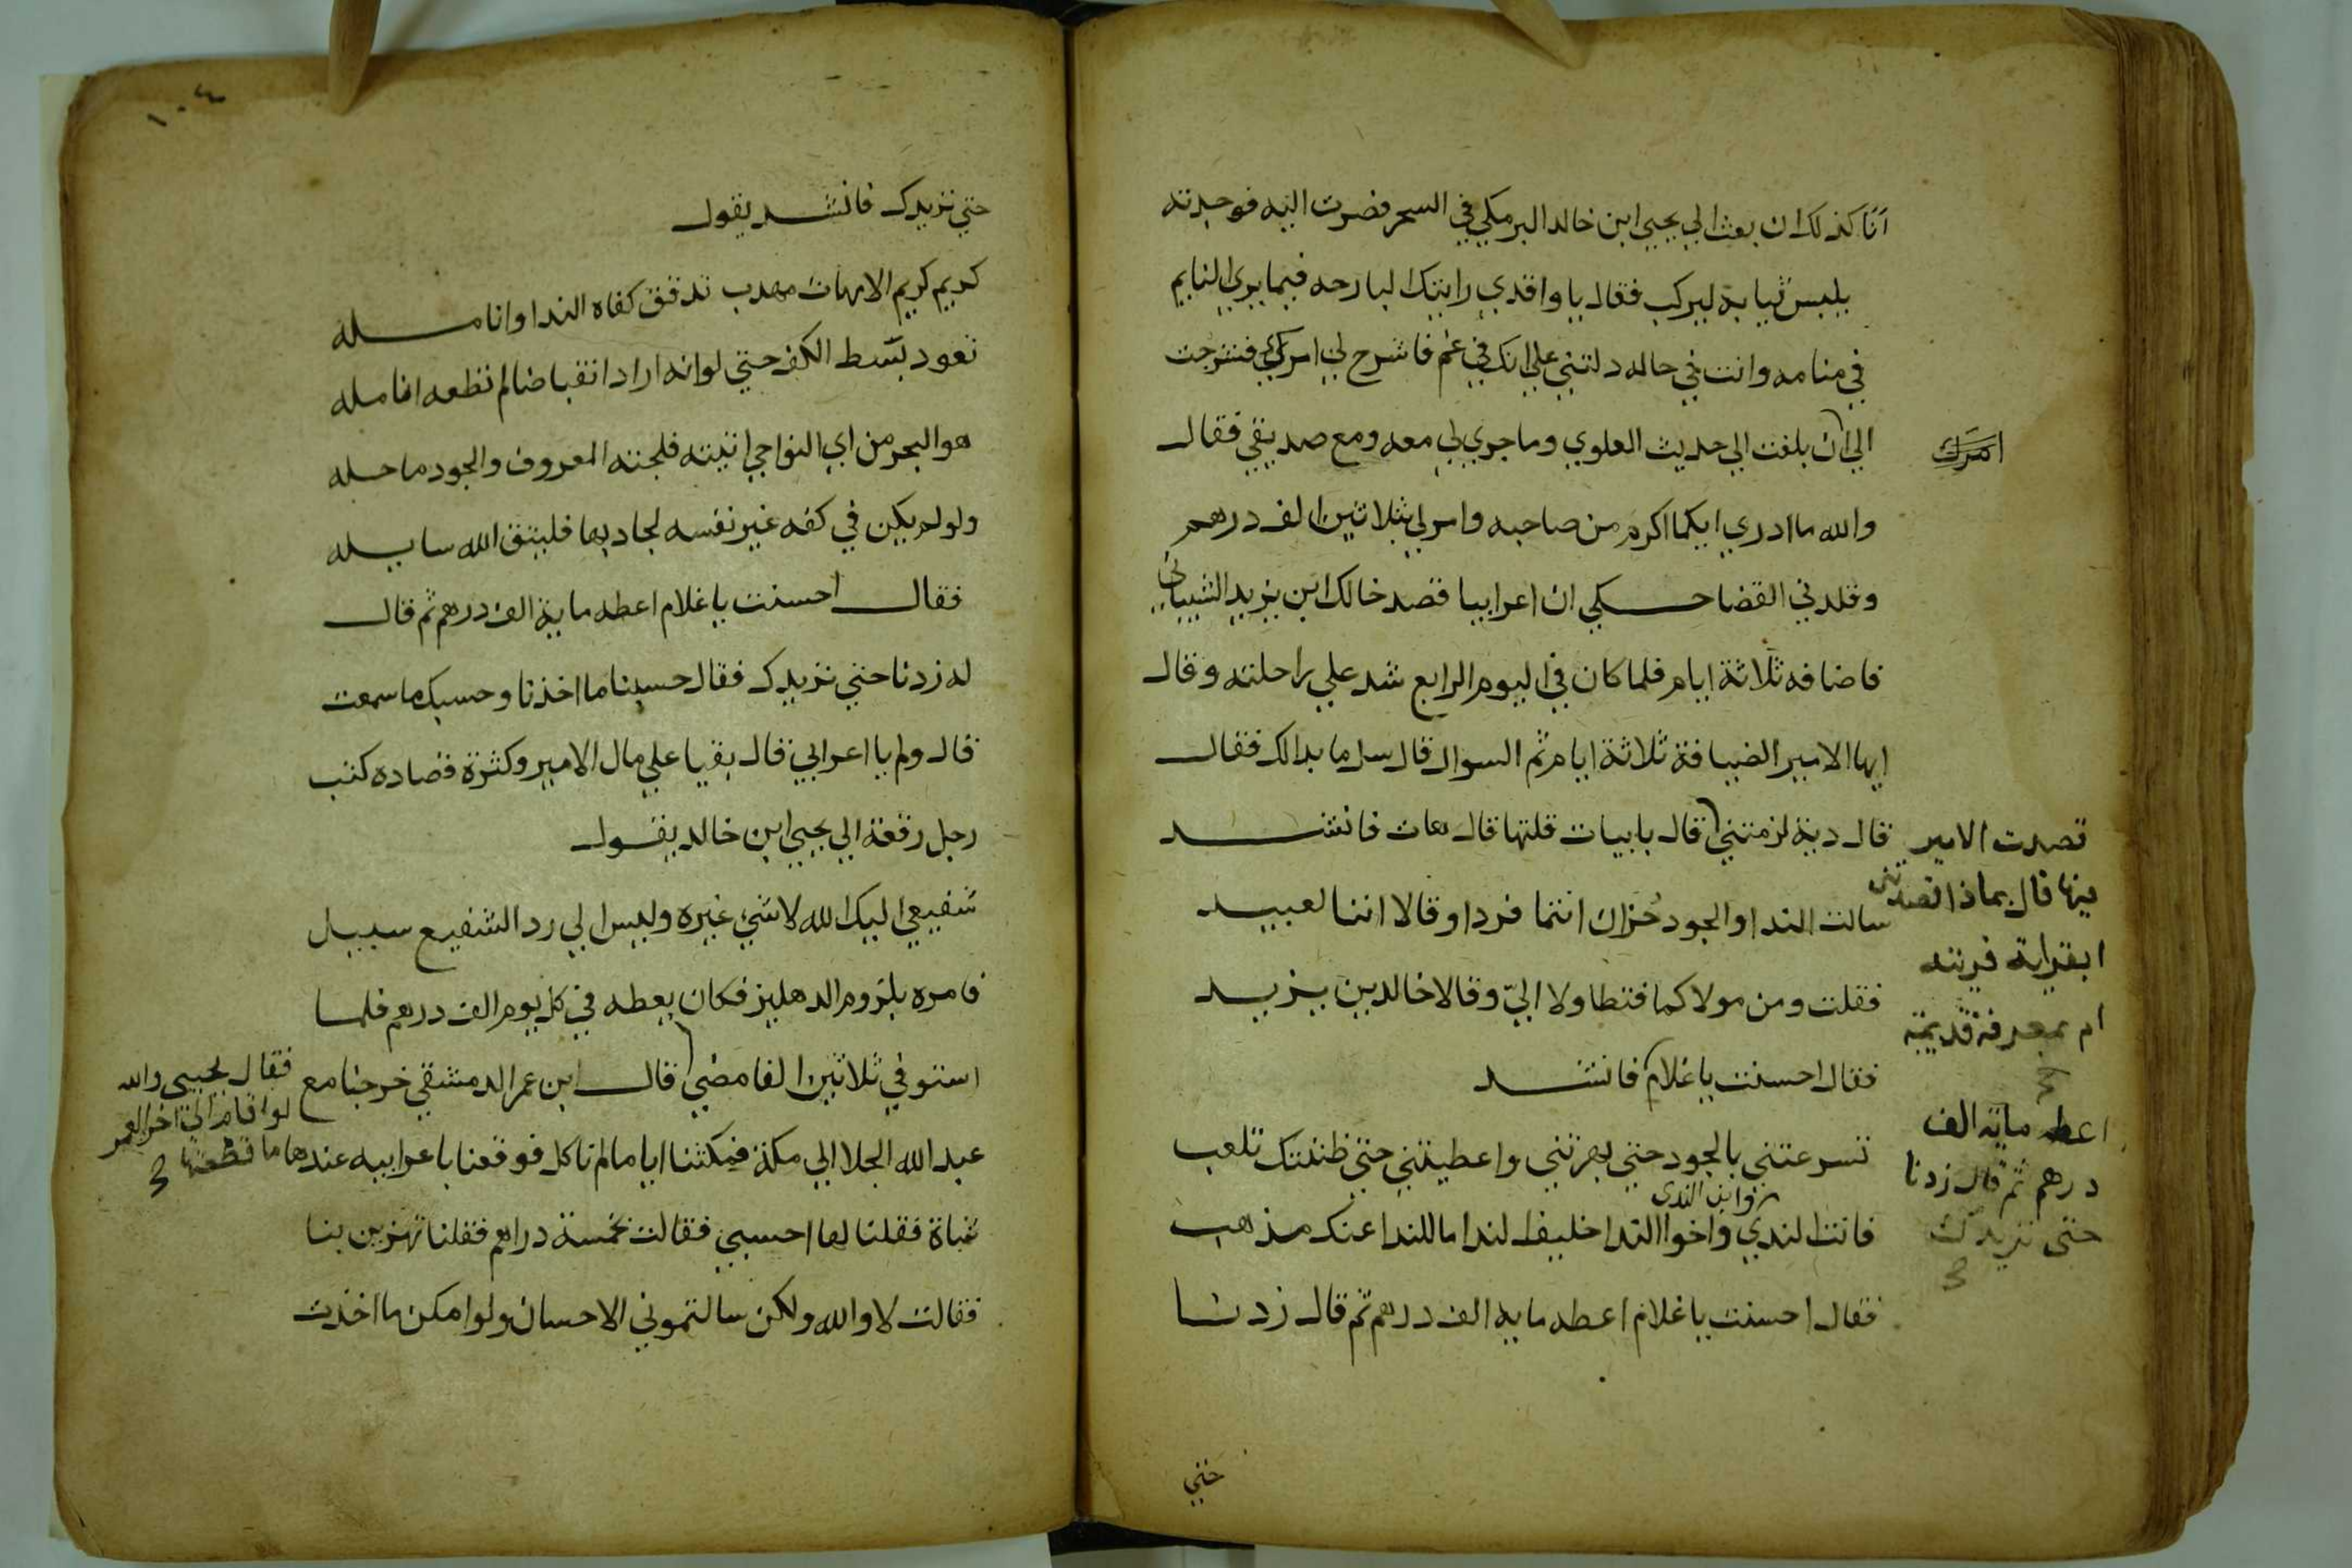 أنا كذلك ان بعث الي يحيي ابن خالد البرمكي في السحر فصرت اليه فوجدته
يلبس ثيابه ليركب فقال يا واقدي رايتك البارحه فيما يري النايم
في منامه وانت في حاله دلتني علي انك في غم فاشرح لي امرك فشرحت
الي ان بلغت الي حديث العلوي وما جري لي معه ومع صديقي فقال
امرك
والله ما ادري ايكما اكرم من صاحبه وامر لي بثلاثين الف درهم
وقلدني القضا حكي ان اعرابيا قصد خالد ابن يزيد الشيباني
فاضافه ثلاثة ايام فلما كان في اليوم الرابع شد علي راحلته وقال
ايها الامير الضيافة ثلاثة ايام ثم السوال قال سل ما بدالك فقال
قال دية لزمتني قال بابيات قلتها قال هات فانشد
قصدت الامير
فيها قال بماذا قصدتني
ابقرابة قريته
ام بمعرفة قديمة
سالت الندا والجود حران انتما فردا وقالا اننا لعبيد
فقلت ومن مولاكما فتطاولا اليّ وقالا خالد بن يزيد
فقال احسنت يا غلام فانشد
اعطه مائة الف
درهم ثم قال زدنا
حتى نزيدك
تسرعتني بالجود حتي بهرتني واعطيتني حتي ظننتك تلعب
وابن الندى
فانت الندي واخوا الندا حليف الندا ما للندا عنك مذهب
فقال احسنت يا غلام اعطه ماية الف درهم ثم قال زدنا
حتي
١٠٤
حتي نزيدك فانشد يقول
كريم كريم الامهات مهدب تدفق كفاه الندا وانامله
تعود بسط الكف حتي لوانه اراد انقباضا لم تطعه انامله
هو البحر من اي النواحي اتيته فلجته المعروف والجود ساحله
ولو لم يكن في كفه غير نفسه لجاد بها فليتق الله سايله
فقال احسنت يا غلام اعطه ماية الف درهم ثم قال
له زدنا حتي نزيدك فقال حسبنا ما اخذنا وحسبك ما سمعت
قال ولم يا اعرابي قال بقيا علي مال الامير وكثرة قصاده كتب
رجل رقعة الي يحيي ابن خالد يقول
شفيعي اليك الله لا شي غيره وليس الي رد الشفيع سبيل
فامره بلزوم الدهليز فكان يعطه في كل يوم الف درهم فلما
استوفي ثلاثين الفا مضي قال ابن عمر الدمشقي خرجنا مع
فقال يحيى والله
لو اقام الى اخر العمر
ما قطعتها
عبد الله الجلا الي مكة فمكثنا اياما لم ناكل فوقعنا باعرابيه عندها
شاة فقلنا لها احسبي فقالت بخمسة دراهم فقلنا تهزين بنا
فقالت لا والله ولكن سالتموني الاحسان ولو امكن ما اخذت